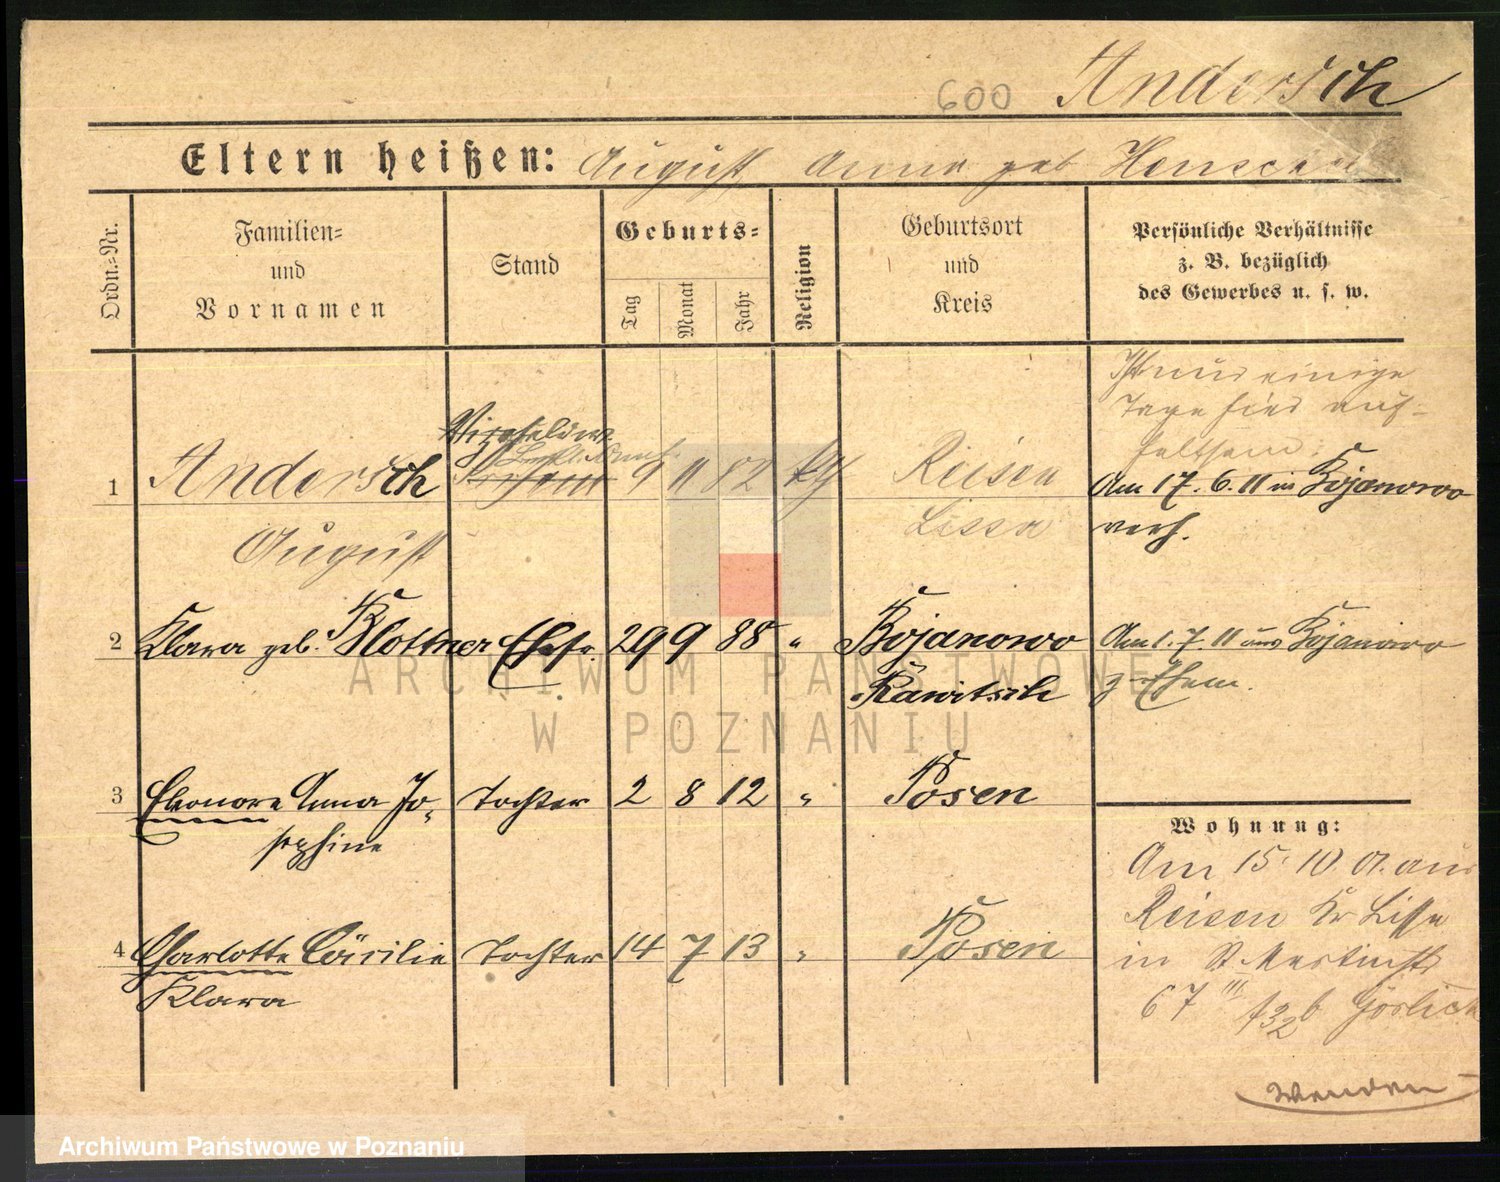 600 Andersch
Eltern heißen: August Anna geb
Ordn.=Nr.
Familien=
und
Vornamen
Stand
Geburts=
Tag
Monat
Jahr
Religion
Geburtsort
und
Kreis
Persönliche Verhältnisse
z. B. bezüglich
des Gewerbes u. s. w.
Ist nur einige
Tage hier auf-
haltsam.
1 Andersch 9 11 82 kg Reisen Am 17. 6. 11 in Bojanowo
August Lissa verh.
2 Klara geb. Klottner Ehefr. 29 9 88 " Bojanowo Am 1. 7. 11 aus Bojanowo
Rawitsch z. Ehem.
3 Eleonore Anna Jo- Tochter 2 8 12 " Posen
sephine
4 Charlotte Cäcilie Tochter 14 7 13 " Posen
Klara
Wohnung:
Am 15. 10. 01. aus
Reisen Kr Lissa
in St Martinstr
67 III b Görlich
Wenden
ARCHIWUM PAŃSTWOWE
W POZNANIU
Archiwum Państwowe w Poznaniu